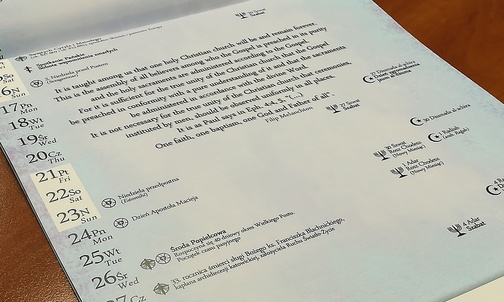 Szabat
2 Niedziela przed Postem
It is taught among us that one holy Christian church will be and remain forever.
This is the assembly of all believers among whom the Gospel is preached in its purity
and the holy sacraments are administered according to the Gospel.
For it is sufficient for the true unity of the Christian church that the Gospel
be preached in conformity with a pure understanding of it and that the sacraments
be administered in accordance with the divine word.
It is not necessary for the true unity of the Christian church that ceremonies,
instituted by men, should be observed uniformly in all places.
It is as Paul says in Eph. 4:4, 5: "(...)
One faith, one baptism, one God and Father of all".
Filip Melanchton
Szabat
16N
Sun
17Pn
Mon
18Wt
Tue
19Śr
Wed
20Cz
Thu
21Pt
Fri
22So
Sat
23N
Sun
Niedziela przedpostna
(Estomihi)
Dzień Apostoła Macieja
24Pn
Mon
25Wt
Tue
26Śr
Wed
Środa Popielcowa
Rozpoczyna się 40 dniowy okres Wielkiego Postu.
Początek czasu pasyjnego
33. rocznica śmierci sługi Bożego ks. Franciszka Blachnickiego,
kapłana archidiecezji katowickiej, założyciela Ruchu Światło-Życie
Rosz Chodesz
(Nowy Miesiąc)
1 Adar
Rosz Chodesz
(Nowy Miesiąc)
1 Radżab
4 Adar
Szabat